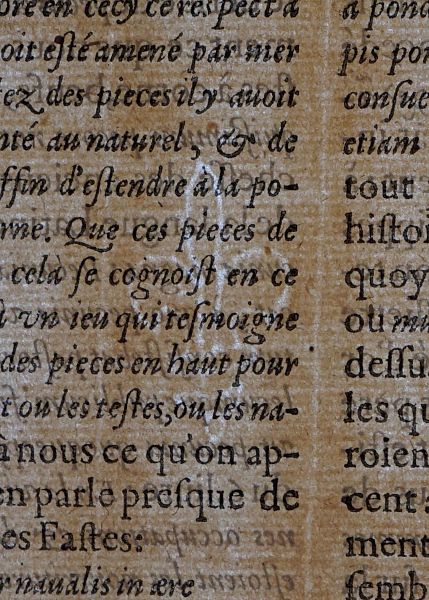 ore en cecy ce respect a
oit eſté amené par mer
ez des pieces il y auoit
nté au naturel, & de
ffin d'eſtendre à la po-
rne. Que ces pieces de
cela ſe cognoiſt en ce
à vn ieu qui teſmoigne
des pieces en haut pour
t ou les teſtes, ou les na-
à nous ce qu'on ap-
en parle preſque de
es Faſtes:
r naualis in ære
a pond
pis por
conſue
etiam
tout
hiſtoi
quoy
ou mu
deſſu
les qu
roien
cent
ment
ſemb